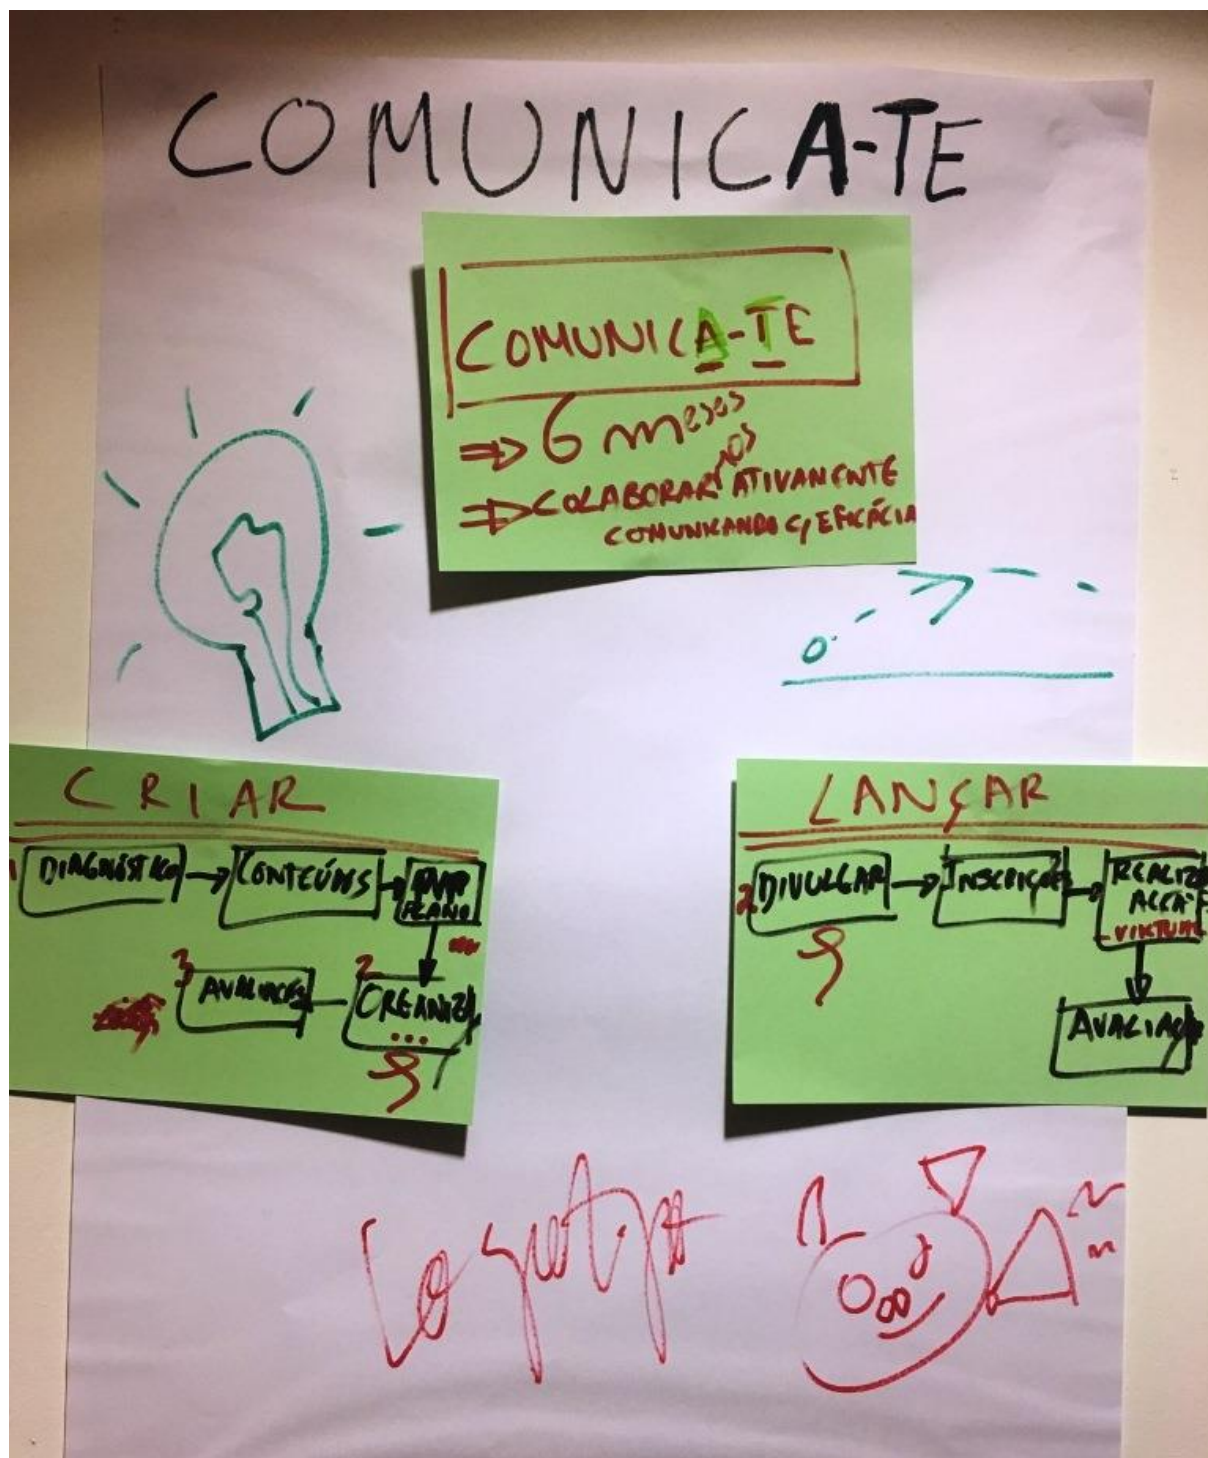 COMUNICA-TE
COMUNICA-TE
⇒ 6 meses
nos
⇒ COLABORAR ATIVAMENTE
COMUNICANDO C/ EFICÁCIA
CRIAR
1 DIAGNÓSTICO → CONTEÚDOS →
PLANO
3 AVALIAÇÃO 2 ORGANIZA
...
LANÇAR
2 DIVULGAR → INSCRIÇÕES → REALIZA
- VIRTUAL
AVALIAÇÃO
Logotipo